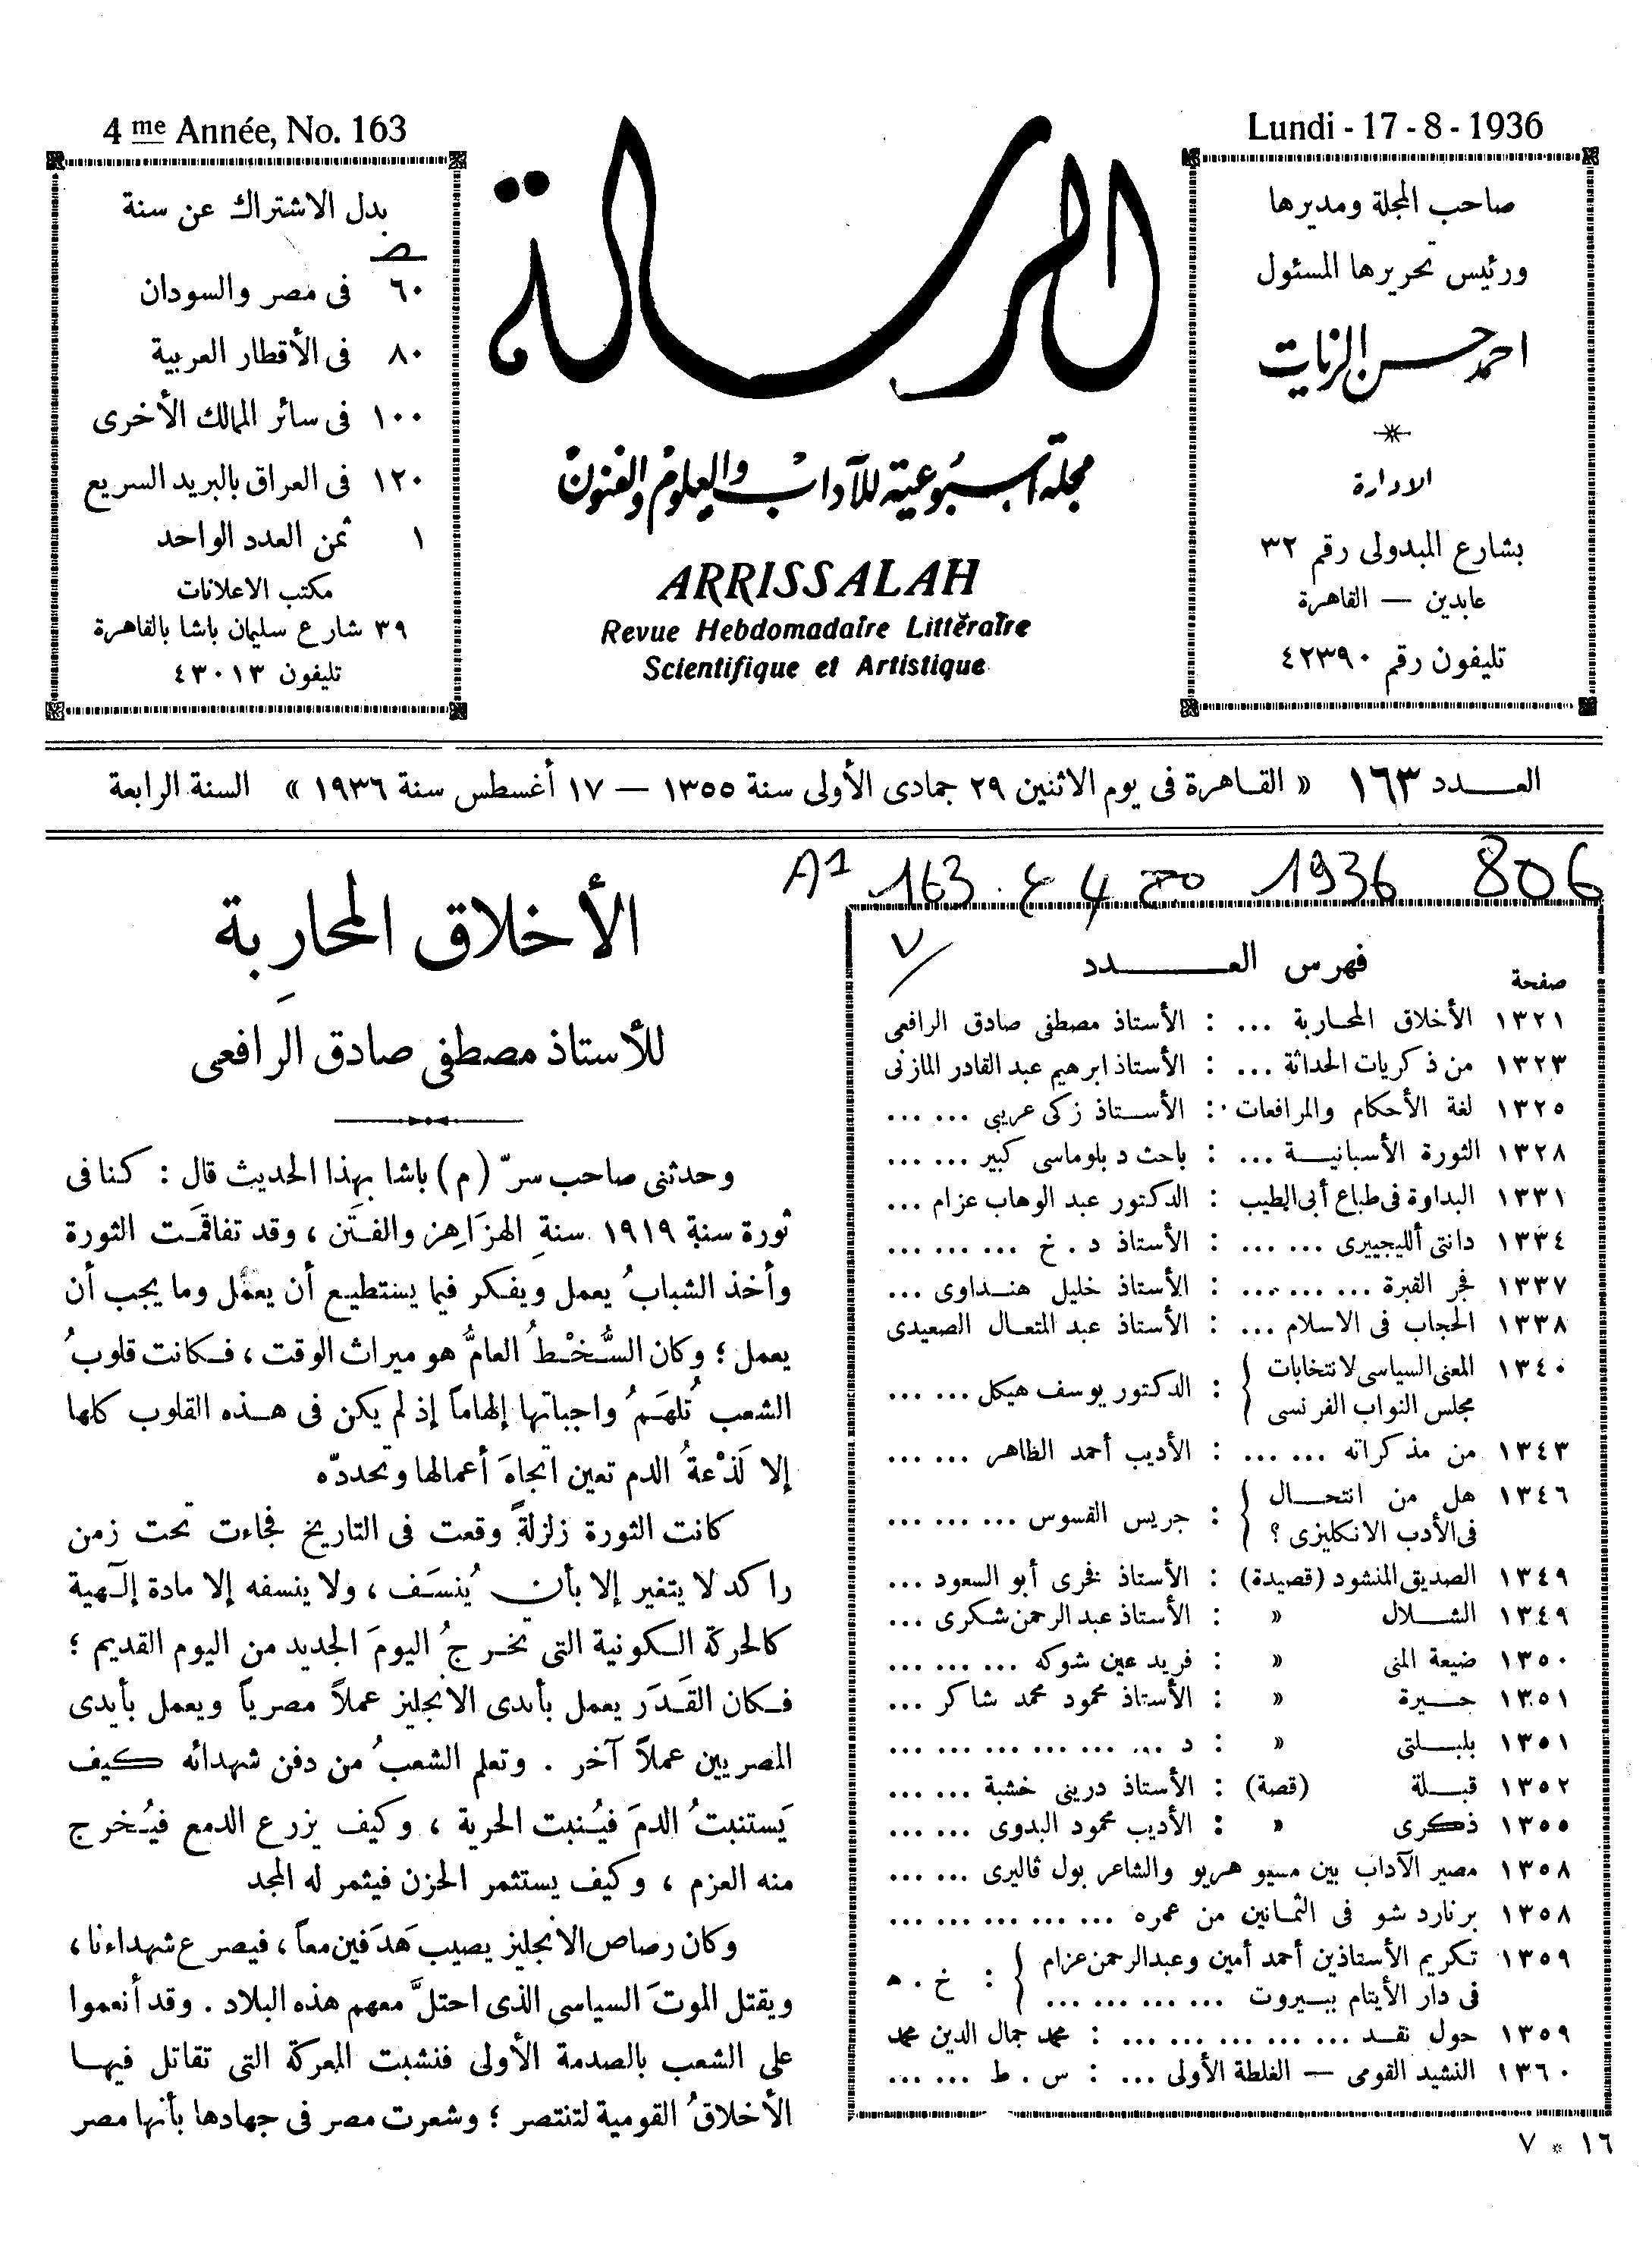 4 me Année, No. 163
Lundi - 17 - 8 - 1936
صاحب المجلة ومديرها
ورئيس تحريرها المسئول
احمد حسن الزيات
الادارة
بشارع المبدولى رقم ٣٢
عابدين — القاهرة
تليفون رقم ٤٢٣٩٠
الرسالة
مجلة أسبوعية للآداب والعلوم والفنون
ARRISSALAH
Revue Hebdomadaire Littéraire
Scientifique et Artistique
بدل الاشتراك عن سنة
ص
٦٠ فى مصر والسودان
٨٠ فى الأقطار العربية
١٠٠ فى سائر الممالك الأخرى
١٢٠ فى العراق بالبريد السريع
١ ثمن العدد الواحد
مكتب الاعلانات
٣٩ شارع سليمان باشا بالقاهرة
تليفون ٤٣٠١٣
العــدد ١٦٣ « القاهرة فى يوم الاثنين ٢٩ جمادى الأولى سنة ١٣٥٥ — ١٧ أغسطس سنة ١٩٣٦ » السنة الرابعة
A1 163 ع 4 1936 806
٧
فهرس العــدد
صفحة
١٣٢١ الأخلاق المحاربة ... : الأستاذ مصطفى صادق الرافعى
١٣٢٣ من ذكريات الحداثة ... : الأستاذ ابرهيم عبد القادر المازنى
١٣٢٥ لغة الأحكام والمرافعات : الأستاذ زكى عريبي ... ...
١٣٢٨ الثورة الأسبانية ... : باحث دبلوماسى كبير ... ...
١٣٣١ البداوة فى طباع أبى الطيب : الدكتور عبد الوهاب عزام ...
١٣٣٤ دانتى ألليجييرى ... ... : الأستاذ د . خ ... ... ...
١٣٣٧ فجر القبرة ... ... ... : الأستاذ خليل هنداوى ...
١٣٣٨ الحجاب فى الاسلام ... : الأستاذ عبد المتعال الصعيدى
١٣٤٠ المعنى السياسى لانتخابات
مجلس النواب الفرنسى : الدكتور يوسف هيكل ... ...
١٣٤٣ من مذكراته ... ... : الأديب أحمد الظاهر ... ...
١٣٤٦ هل من انتحــال
فى الأدب الانكليزى ؟ : جريس القسوس ... ... ...
١٣٤٩ الصديق المنشود (قصيدة) : الأستاذ فخرى أبو السعود ...
١٣٤٩ الشــلال « : الأستاذ عبد الرحمن شكرى ...
١٣٥٠ ضيعة المنى « : فريد عين شوكه ... ... ...
١٣٥١ حــيرة « : الأستاذ محمود محمد شاكر ...
١٣٥١ بلبــلتى « : د ... ... ... ... ... ...
١٣٥٢ قبــلة (قصة) : الأستاذ درينى خشبة ... ...
١٣٥٥ ذكرى « : الأديب محمود البدوى ... ...
١٣٥٨ مصير الآداب بين مسيو هريو والشاعر بول ڤاليرى ... ...
١٣٥٨ برنارد شو فى الثمانين من عمره ... ... ... ... ...
١٣٥٩ تكريم الأستاذين أحمد أمين وعبد الرحمن عزام
فى دار الأيتام ببيروت ... ... ... ... : خ . ه
١٣٥٩ حول نقــد ... ... ... ... ... : محمد جمال الدين محمد
١٣٦٠ النشيد القومى — الغلطة الأولى ... : س . ط ... ...
١٦ * ٧
الأخلاق المحارِبة
للأستاذ مصطفى صادق الرافعى
وحدثنى صاحب سرّ (م) باشا بهذا الحديث قال : كنا فى
ثورة سنة ١٩١٩ سنةِ الهزَاهِز والفتَن ، وقد تفاقمَت الثورة
وأخذ الشبابُ يعمل ويفكر فيما يستطيع أن يعمَل وما يجب أن
يعمل ؛ وكان السُّخْطُ العامُّ هو ميراث الوقت ، فكانت قلوبُ
الشعب تُلهَمُ واجباتها إلهاماً إذ لم يكن فى هذه القلوب كلها
إلا لَذْعةُ الدم تعين اتجاهَ أعمالها وتحدده
كانت الثورة زلزلةً وقعت فى التاريخ فجاءت تحت زمن
راكد لا يتغير إلا بأن يُنسَف ، ولا ينسفه إلا مادة إلهية
كالحركة الكونية التى تخرجُ اليومَ الجديد من اليوم القديم ؛
فكان القَدَر يعمل بأيدى الانجليز عملاً مصرياً ويعمل بأيدى
المصريين عملاً آخر . وتعلم الشعبُ من دفن شهدائه كيف
يَستنبتُ الدمَ فيُنبت الحرية ، وكيف يزرع الدمع فيُخرج
منه العزم ، وكيف يستثمر الحزن فيثمر له المجد
وكان رصاص الانجليز يصيب هَدَفين معاً ، فيصرع شهداءنا ،
ويقتل الموتَ السياسى الذى احتلَّ معهم هذه البلاد . وقد أنعموا
على الشعب بالصدمة الأولى فنشبت المعركة التى تقاتل فيها
الأخلاقُ القومية لتنتصر ؛ وشعرت مصر فى جهادها بأنها مصر